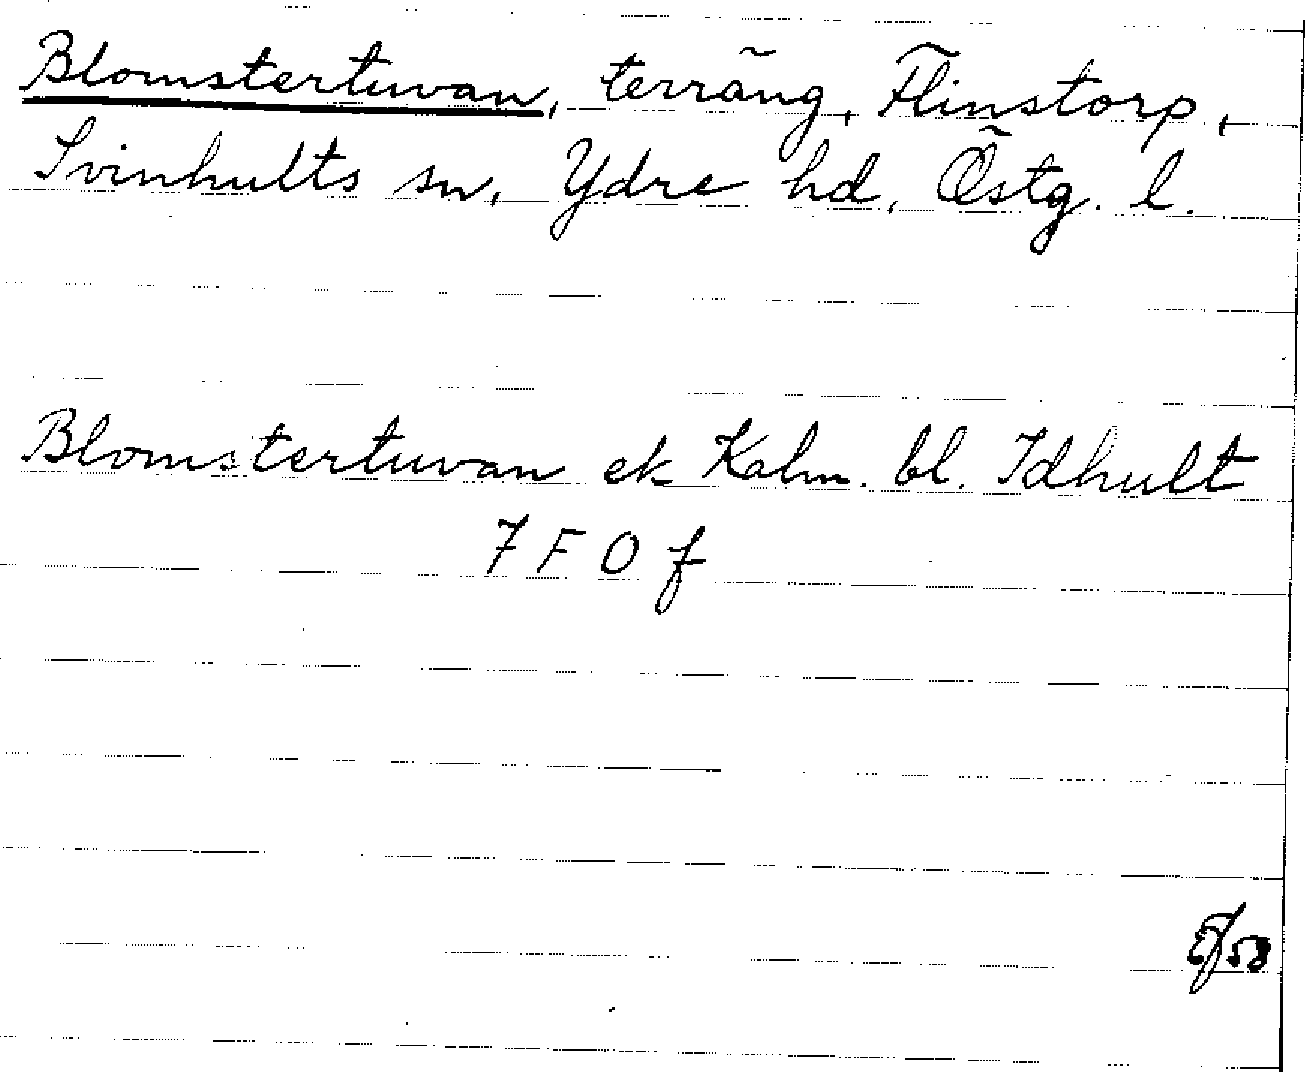 Blomstertuvan, terräng, Flinstorp,
Svinhults sn, Ydre hd, Östg. l.
Blomstertuvan ek Kalm. bl. Idhult
7 F O f